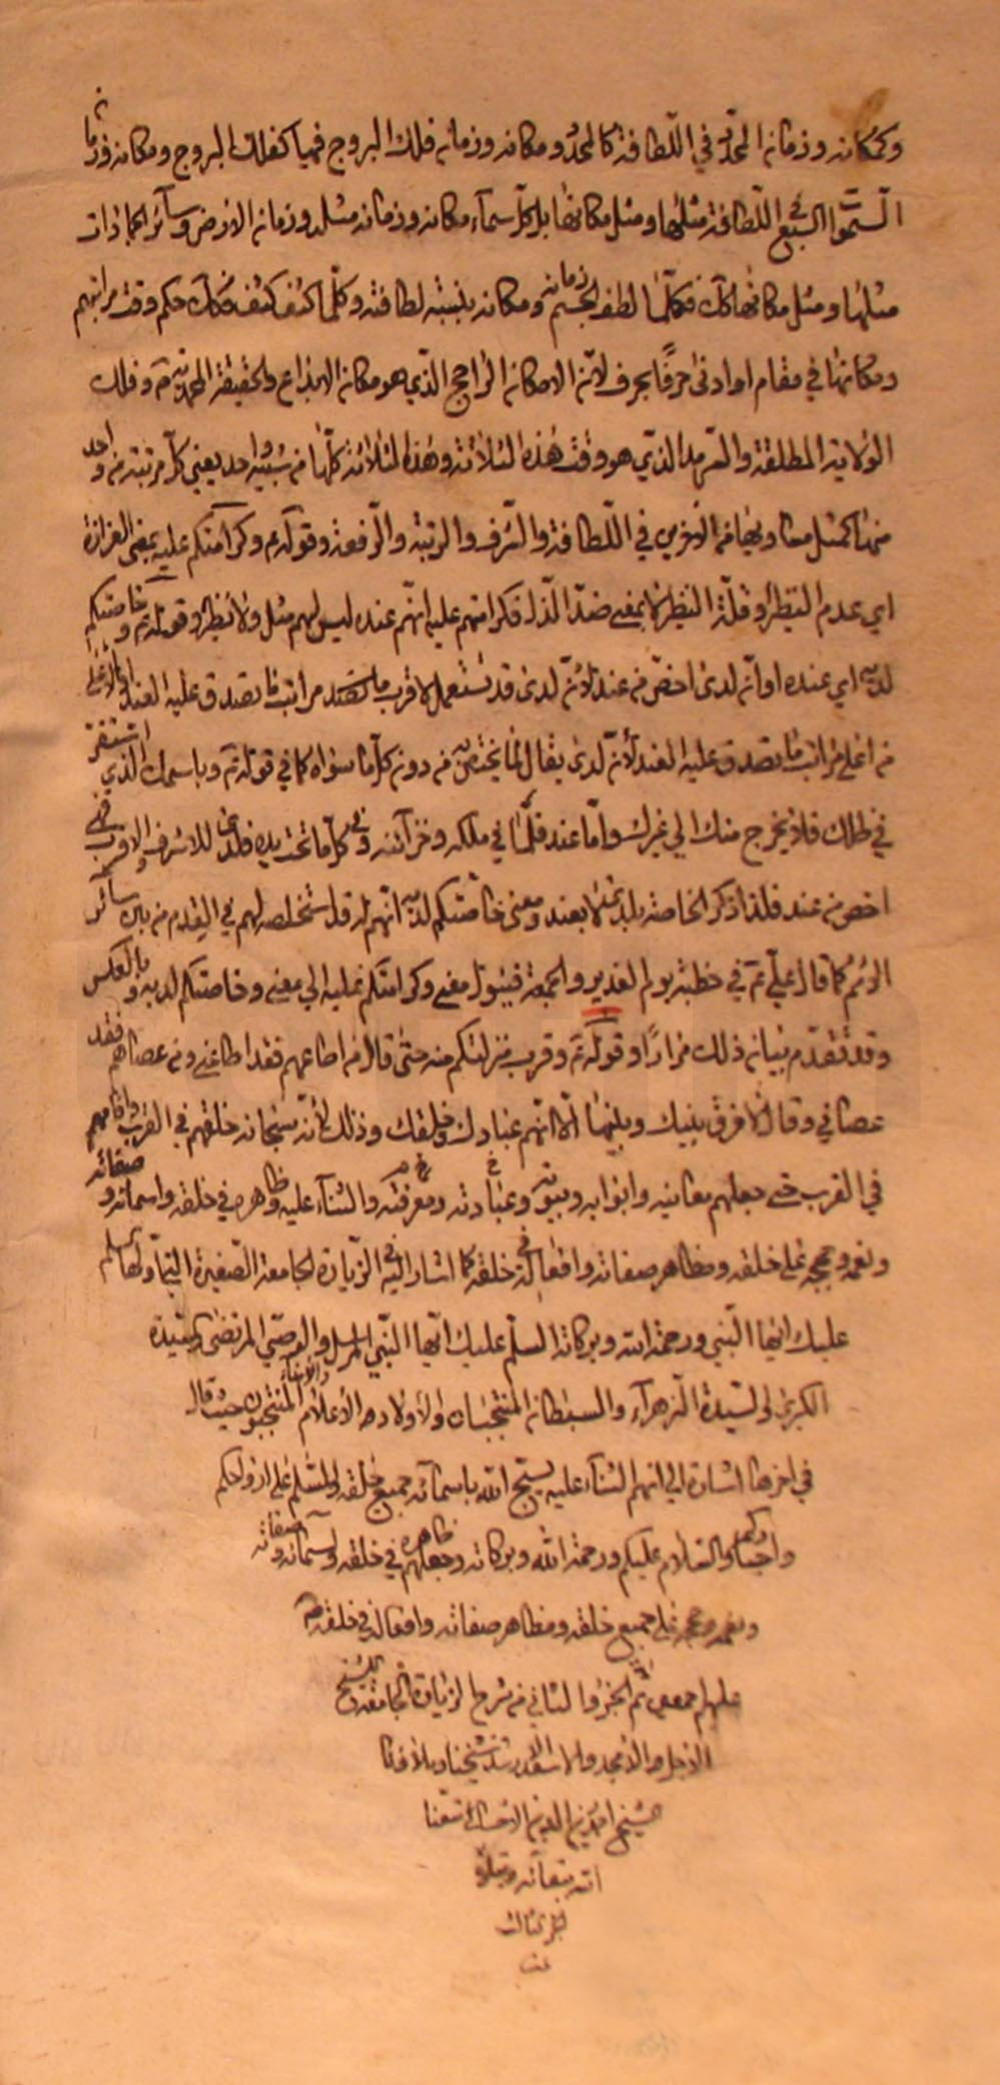 وكمكانه وزمانه المحدّد في اللّطافة كالمحدّد ومكانه وزمانه فلك البروج فهما كفلك البروج ومكانه وزمانه
السّموات السبع في اللّطافة مثلها ومثل مكانها بل كلّ سمآء مكانه وزمانه مثله وزمانه الارض وسائر الجمادات
مثلها ومثل مكانها كك فكلّما لطف الجسم زمانه ومكانه بنسبة لطافته وكلّما كثف كثف فكان حكم وقت مراتبهم
ومكانها في مقام او ادنى حرفًا بحرف لانّه الامكان الراجح الّذي هو مكانه الابداع والحقيقة المحمّديّة وفلك
الولاية المطلقة والسّرمد الّذي هو وقت هذه الثلاثة وهذه الثلاثة كلّها من شيء واحد يعني كلّ مرتبة من واحد
منها كمثل مساويها من الاخرى في اللّطافة والشّرف والرتبة والرّفعة وقوله ع وكرامتكم عليه بمعنى العزازة
اي عدم النظير وقلّة النظير لا بمعنى ضدّ الذل فكرامتهم عليه انّهم عنده ليس لهم مثل ولا نظير وقوله ع وخاصّتكم
لديه اي عنده او انّه لدى اخصّ من عند لانّ لدى قد تستعمل لاقرب مراتب ما تصدق عليه العند
من اعلى مراتب ما تصدق عليه العند لانّ لدى يقال لما يختص به من دون كلّ ما سواه كما في قوله تع وباسمك الذي استقرّ
في ظلك فلا يخرج منك الى غيرك وامّا عند فلما في ملكه وخزآئنه وفي كلّ ما تحت يده فلدى للاشرف والاقرب فهي
اخص من عند فلذا ذكر الخاصة بلدى لا بعند ومعنى خاصّتكم لديه انّهم له قد استخلصهم في القدم من بين سائر
الامم كما قال عليّ ع في خطبة يوم الغدير والجمعة فيئول معنى وكرامتكم عليه الى معنى وخاصتكم لديه وبالعكس
وقد تقدّم بيانه ذلك مرارًا وقوله ع وقرب منزلتكم منه حتى قال من اطاعهم فقد اطاعني ومن عصاهم فقد
عصاني وقال لا فرق بينك وبينها الّا انّهم عبادك وخلقك وذلك لانّه سبحانه خلقهم في القرب واقامهم
في القرب حتى جعلهم معانيه وابوابه وبيوته وعبادته ومعرفته والثنآء عليه وظاهره في خلقه واسمائه وصفاته
ونعمه وحججه على خلقه ومظاهر صفاته وافعاله في خلقه كما اشار اليه في الزّيارة الجامعة الصّغيرة الّتي اوّلها السلم
عليك ايّها النّبي ورحمة الله وبركاته السلّم عليك ايّها النّبي المرسل والوصيّ المرتضى والسيّدة
الكبرى والسّيدة الزهرآء والسبطان المنتجبان والاولاد الاعلام والامناء المنتجبون حيث قال
في اخرها اشارة الى انّهم الثنآء عليه يسبّح الله باسمائه جميع خلقه والسّلم على ارواحكم
واجسادكم والسّلام عليكم ورحمة الله وبركاته وجعلهم ظاهره في خلقه واسمائه وصفاته
ونعمه وحججه على جميع خلقه ومظاهر صفاته وافعاله في خلقه
عليهم اجمعين تم الجزؤ الثاني من شرح الزيارة الجامعة للشيخ
الاجل والامجد والاسعد شيخنا وملاذنا
الشيخ احمد بن زين الدين الاحسائي متّعنا
الله ببقآئه